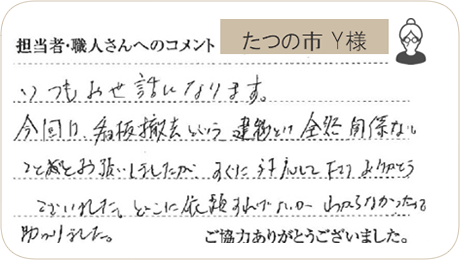 担当者・職人さんへのコメント
たつの市 Y様
いつもお世話になります。
今回は、看板撤去という建物とは全然関係ない
ことをお願いしましたが、すぐに対応して下さりありがとう
ございました。どこに依頼すればいいかわからなかったので
助かりました。
ご協力ありがとうございました。